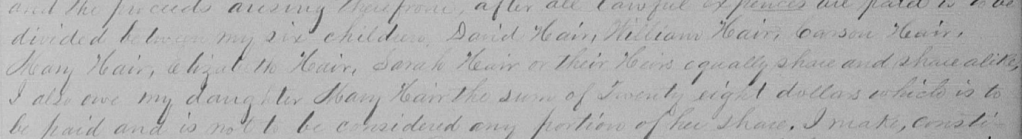 and the proceeds arising therefrom, after all lawful expences are paid is to be
divided between my six children, David Hair, William Hair, Carson Hair,
Mary Hair, Elizabeth Hair, Sarah Hair or their Heirs equally share and share alike,
I also owe my daughter Mary Hair the sum of Twenty eight dollars which is to
be paid and is not to be considered any portion of her share. I make, consti-